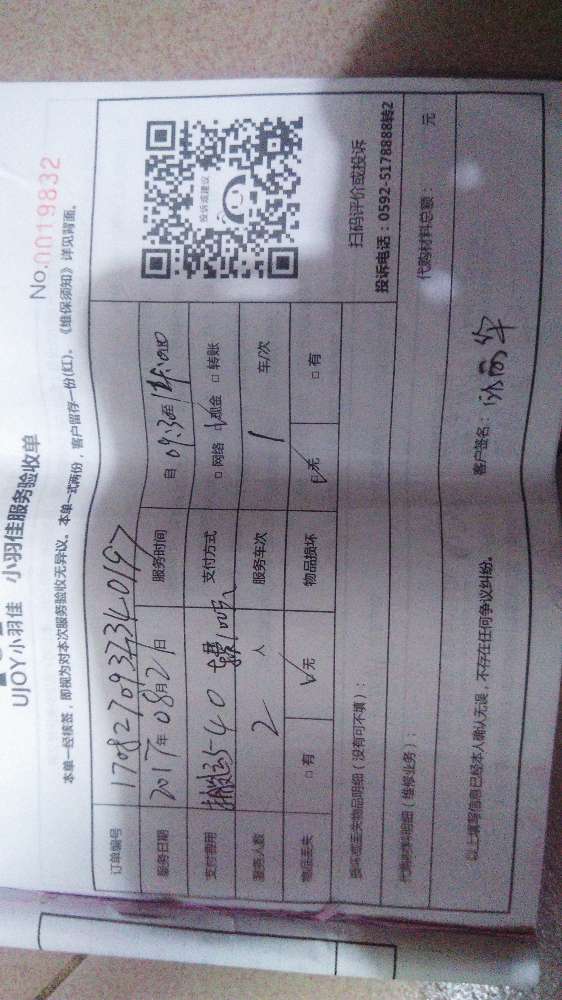 UJOY小羽佳 小羽佳服务验收单
No.0019832
本单一经核签，即视为对本次服务验收无异议。本单一式两份，客户留存一份(红)。《维保须知》详见背面。
订单编号 170827093734019
服务日期 2017年08月27日 服务时间 自 09:30至
支付费用 搬运540 支付方式 □网络 ☑现金 □转账
服务人数 2 人 服务车次 1 车/次
物品丢失 □有 ☑无 物品损坏 ☑无 □有
投诉或建议
扫码评价或投诉
投诉电话：0592-5178888转2
损坏或丢失物品明细（没有可不填）：
代购材料明细（维修业务）： 代购材料总额： 元
以上填写信息已经本人确认无误，不存在任何争议纠纷。 客户签名：